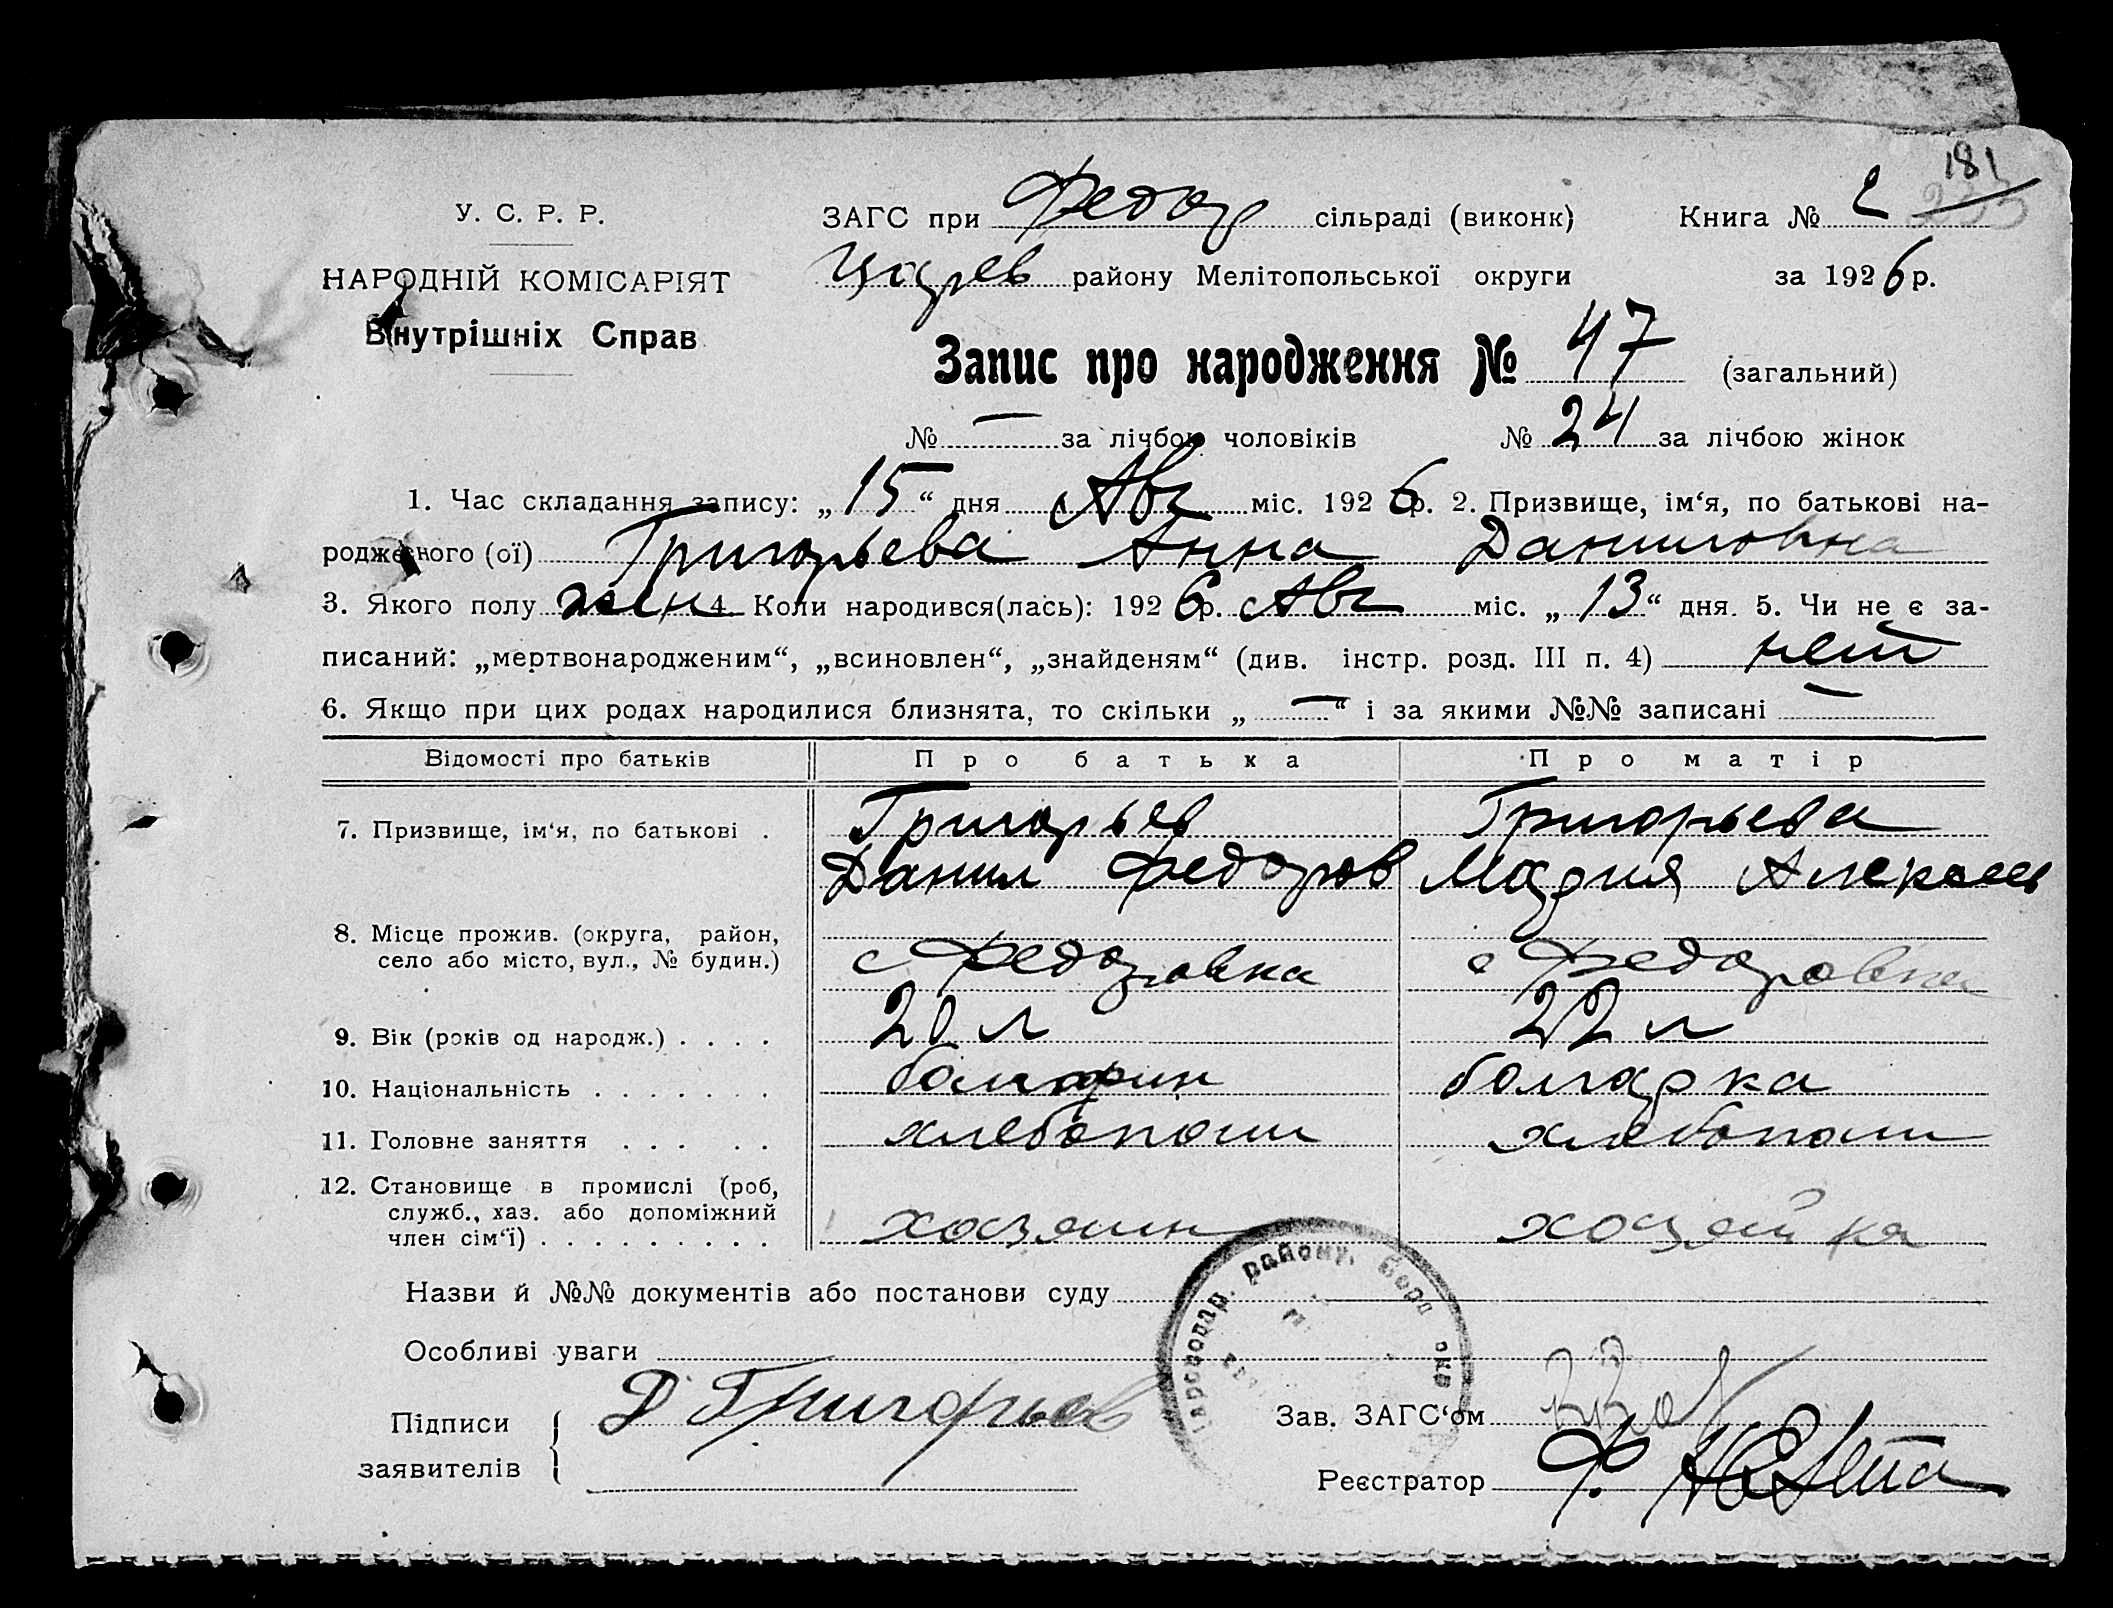 181
У. С. Р. Р.
ЗАГС при Федор сільраді (виконк) Книга № 2
НАРОДНІЙ КОМІСАРІЯТ
Цацрев району Мелітопольської округи за 1926 р.
Внутрішніх Справ
Запис про народження № 47 (загальний)
№ — за лічбою чоловіків № 24 за лічбою жінок
1. Час складання запису: „15“ дня Авг міс. 1926 р. 2. Призвище, ім‘я, по батькові на-
родженого (ої) Григорьева Анна Даниловна
3. Якого полу жен 4. Коли народився(лась): 1926 р. Авг міс. „13“ дня. 5. Чи не є за-
писаний: „мертвонародженим“, „всиновлен“, „знайденям“ (див. інстр. розд. III п. 4) нет
6. Якщо при цих родах народилися близнята, то скільки „—“ і за якими №№ записані —
Відомості про батьків Про батька Про матір
7. Призвище, ім‘я, по батькові . Григорьев Григорьева
Данил Федоров Мария Алексеев
8. Місце прожив. (округа, район,
село або місто, вул., № будин.) с Федоровка с Федоровка
9. Вік (років од народж.) . . . . 20 л 22 л
10. Національність . . . . . . . болгарин болгарка
11. Головне заняття . . . . . хлебопаш хлебопаш
12. Становище в промислі (роб,
служб., хаз. або допоміжний
член сім‘ї) . . . . . . . . . хозяин хозяйка
Назви й №№ документів або постанови суду
району,
Особливі уваги
Підписи Д Григорьев
Зав. ЗАГС‘ом
заявителів
Реєстратор Ф.